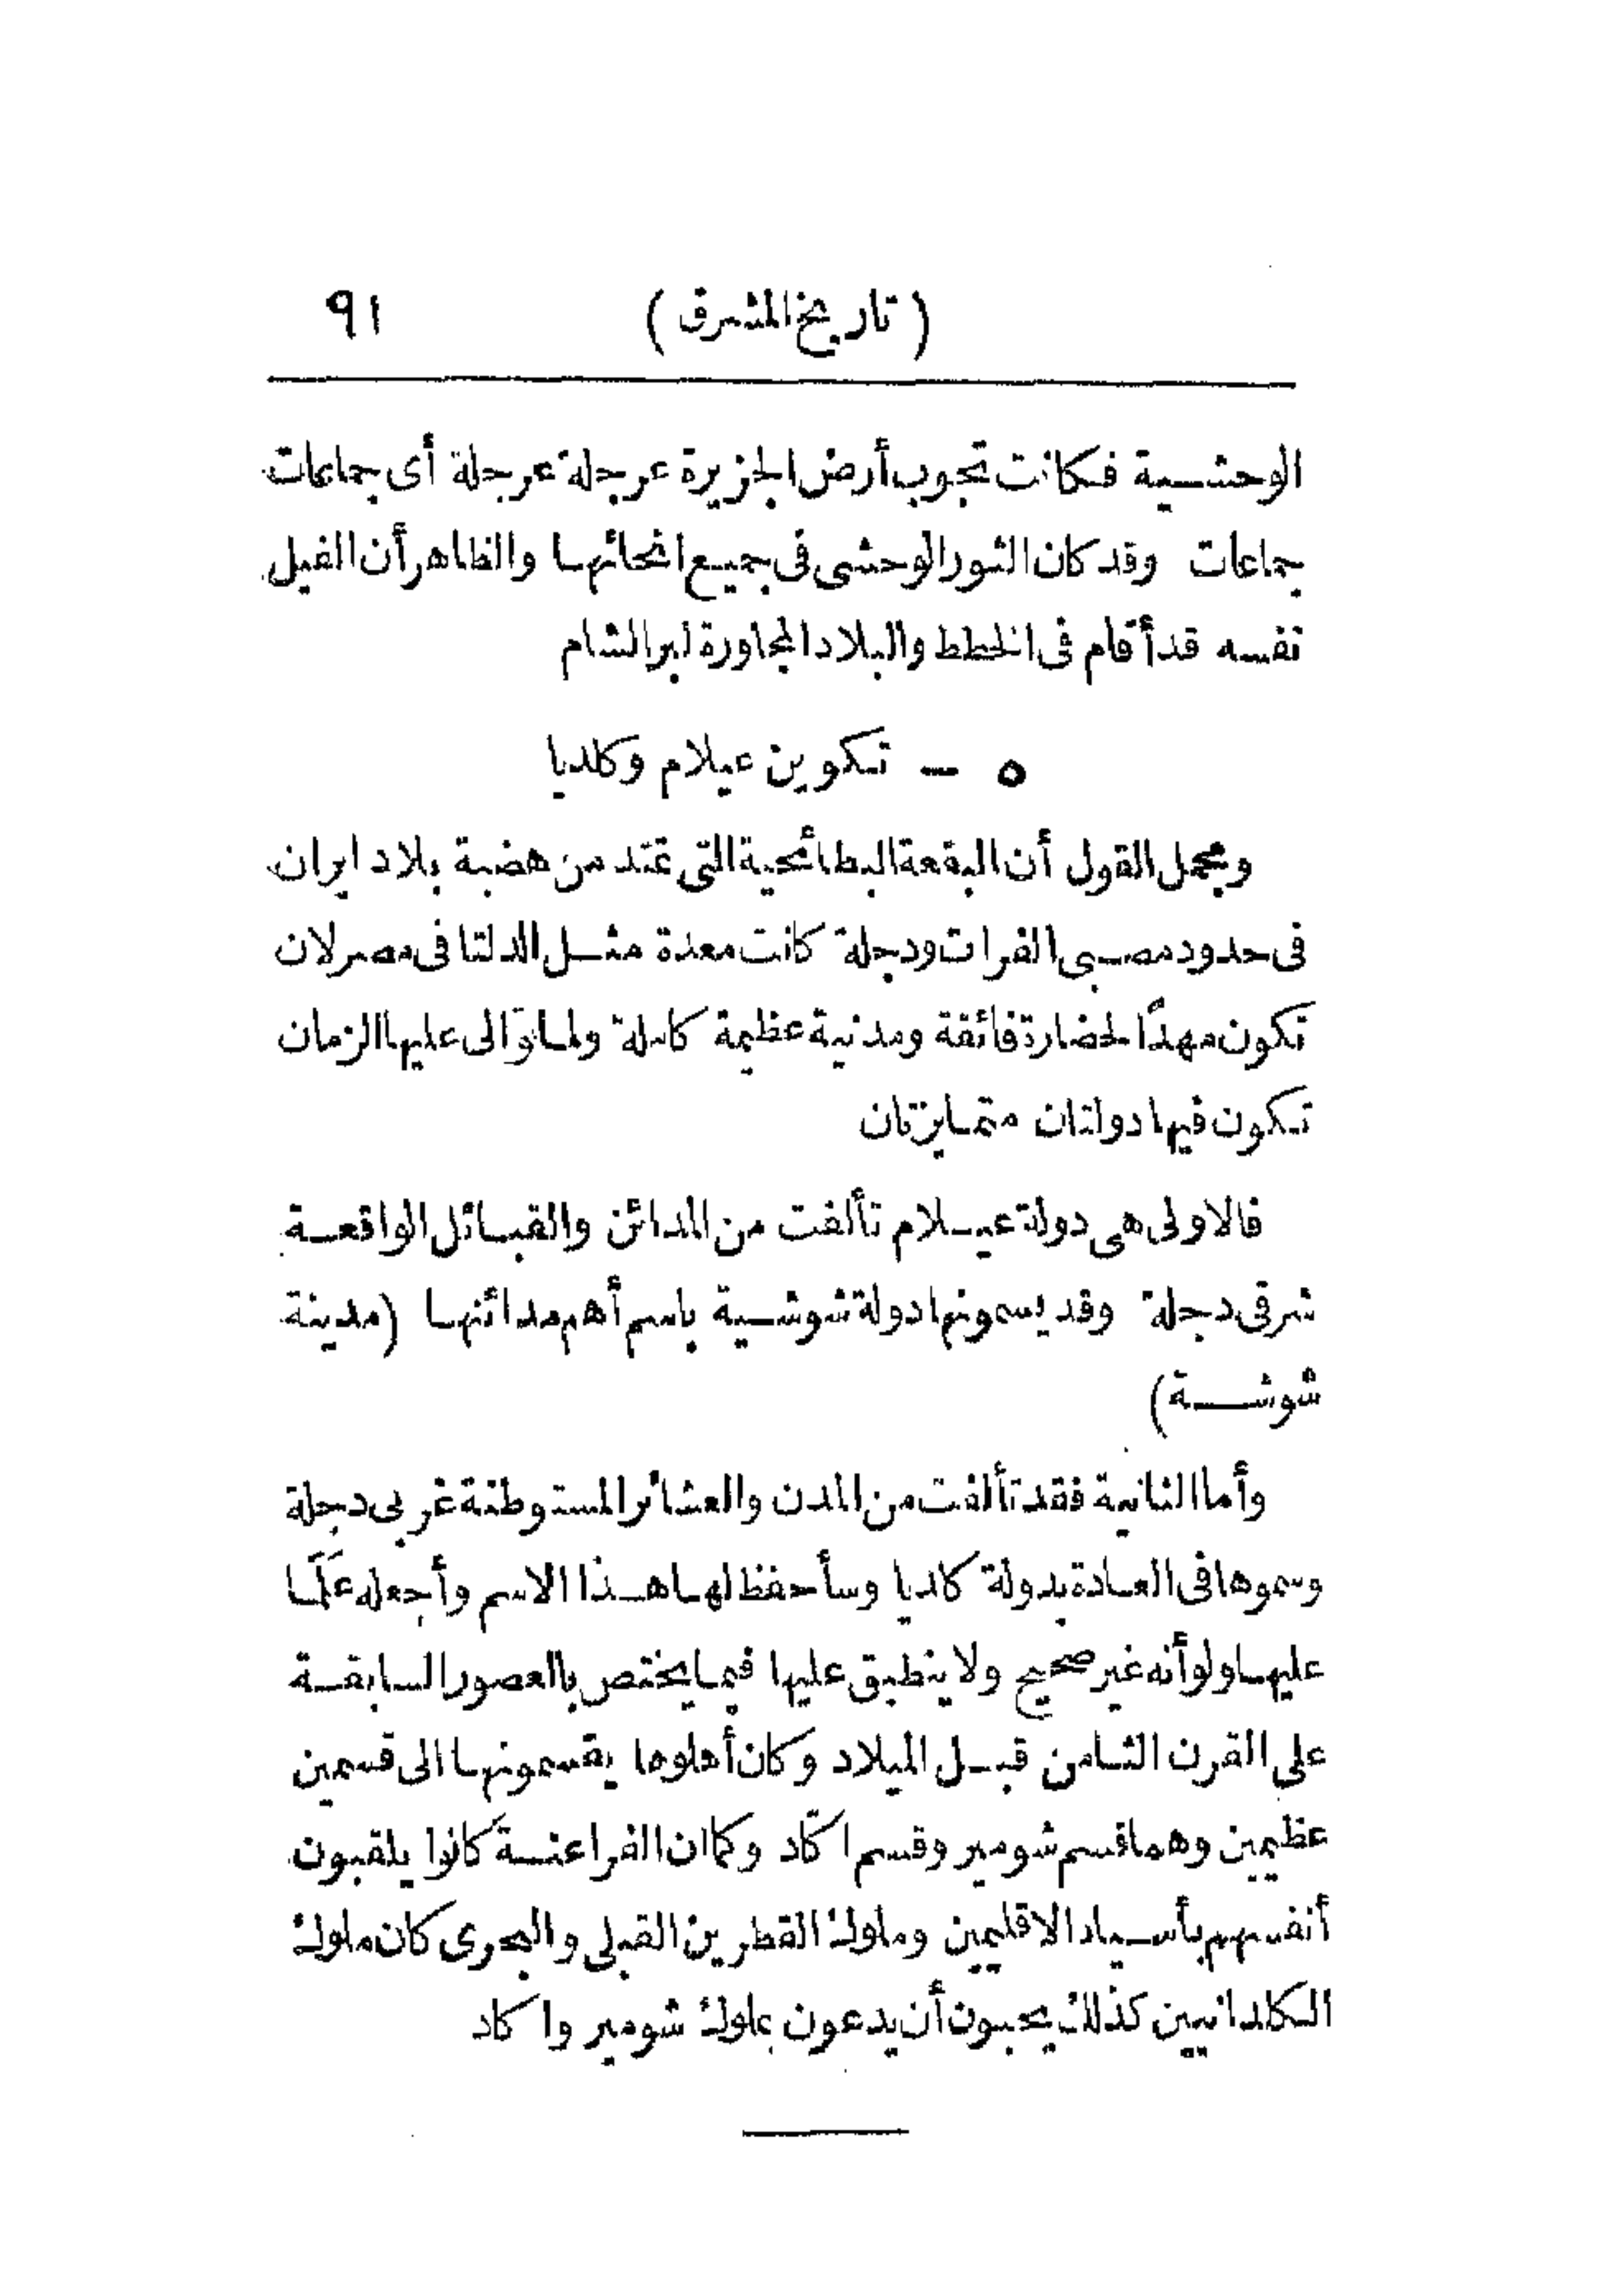 (تاريخ المشرق) ٩١
الوحشية فكانت تجوب أرض الجزيرة عرجلة عرجلة أى جماعات
جماعات وقد كان الثور الوحشى فى جميع انحائها والظاهر أن الفيل
نفسه قد أقام فى الخطط والبلاد المجاورة لبر الشام
٥ – تكوين عيلام وكلديا
ومجمل القول أن البقعة البطائحية التى تمتد من هضبة بلاد ايران
فى حدود مصبى الفرات ودجلة كانت معدة مثل الدلتا فى مصر لان
تكون مهدًا لحضارة فائقة ومدنية عظيمة كاملة ولما توالى عليها الزمان
تكون فيها دولتان متمايزتان
فالاولى هى دولة عيلام تألفت من المدائن والقبائل الواقعة
شرقى دجلة وقد يسمونها دولة شوشية باسم أهم مدائنها (مدينة
شوشة)
وأما الثانية فقد تألفت من المدن والعشائر المستوطنة غربى دجلة
وسموها فى العادة بدولة كلديا وسأحفظ لها هذا الاسم وأجعله عَلَمًا
عليها ولو أنه غير صحيح ولا ينطبق عليها فيما يختص بالعصور السابقة
على القرن الثامن قبل الميلاد وكان أهلوها يقسمونها الى قسمين
عظيمين وهما قسم شومير وقسم اكّاد وكما ان الفراعنة كانوا يلقبون
أنفسهم بأسياد الاقليمين وملوك القطرين القبلى والبحرى كان ملوك
الكلدانيين كذلك يحبون أن يدعون بملوك شومير واكاد